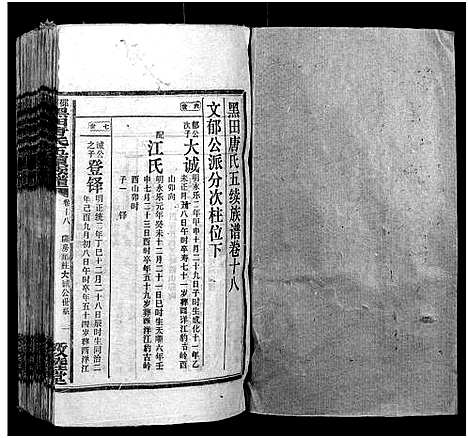 黑田唐氏五续族谱卷十八
文郁公派分次柱位下
六世
郁公次子
大诚
明永乐二年甲申十月二十九日子时生成化十一年乙
未正月八日午时卒寿七十一岁葬西洋江豹古岭酉
山卯向
配
江氏
明永乐元年癸未十二月二十一日巳时生天顺六年壬
申七月二十三日酉时卒年五十九岁葬西洋江豹古岭
酉山卯时
子一 铎
七世
诚公之子
登铎
明正统二年丁巳十二月二十八日辰时生
年己酉九月初八日午时卒年五十四岁葬西洋江
黑田唐氏五续族谱
卷十八
大诚公世系
一
敦睦堂